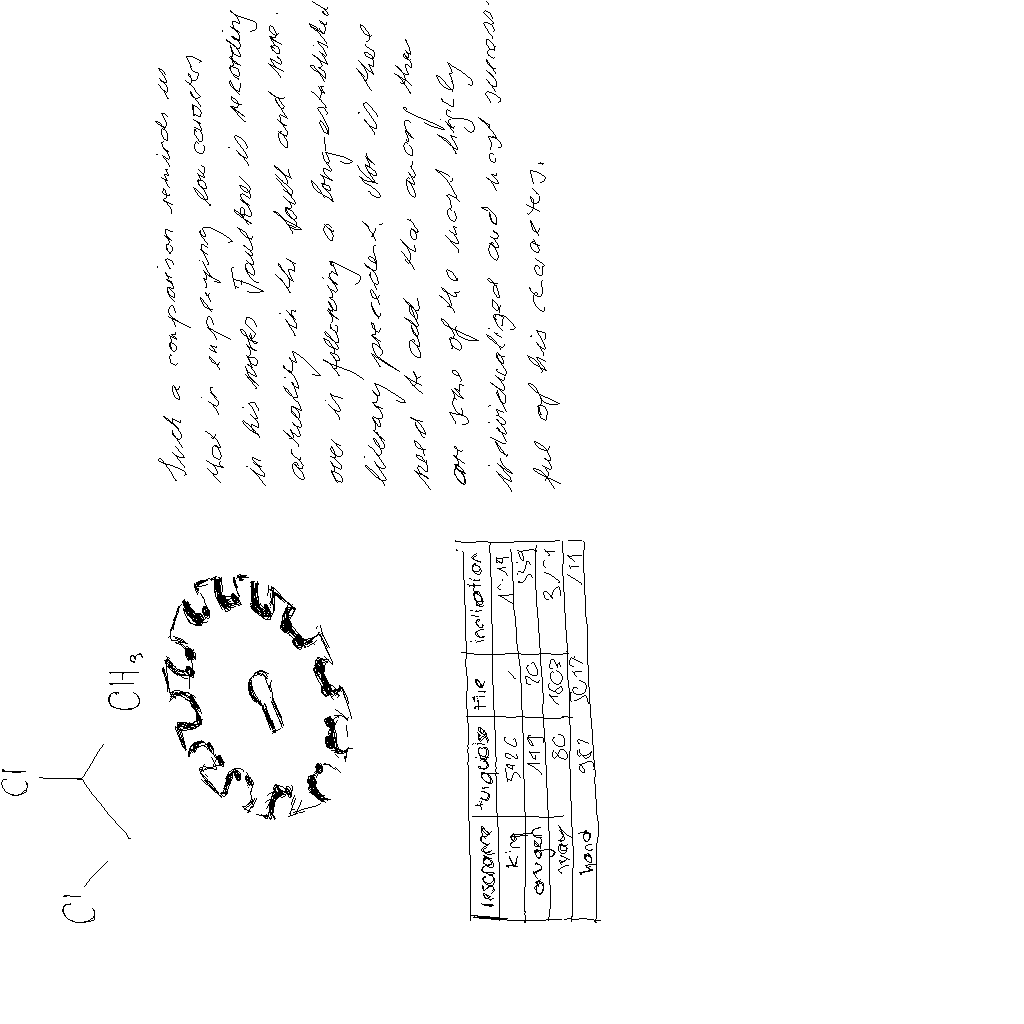 Such a comparison reminds us
that in employing low comedy
in his works Faulkner is recording
actuality in the South and more-
over is following a long-established
literary precedent. Nor is there
need to add that among them
are some of the most highly
individualized and most success-
ful of his characters.
Cl
Cl
CH3
turquoise File inclination
king 5426
oxygen 149 70 559
way 80 1603
hand 987